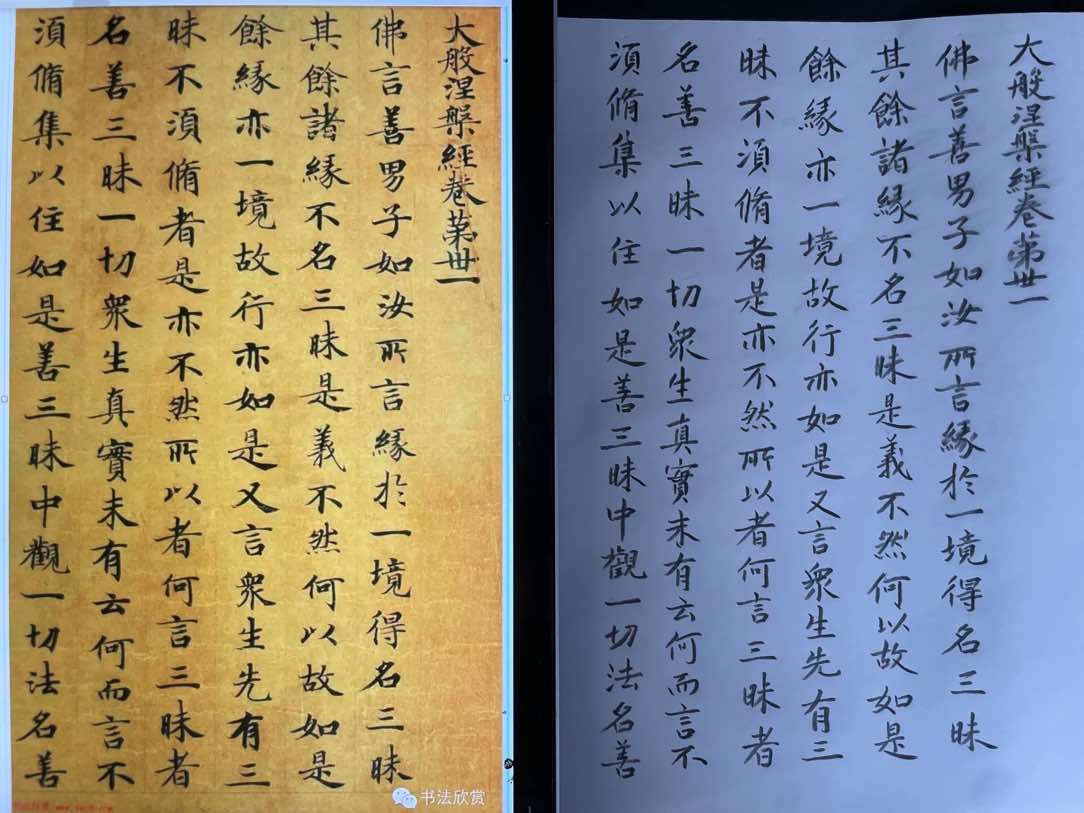 大般涅槃經卷第丗一
佛言善男子如汝所言緣於一境得名三昧
其餘諸緣不名三昧是義不然何以故如是
餘緣亦一境故行亦如是又言衆生先有三
昧不須脩者是亦不然所以者何言三昧者
名善三昧一切衆生真實未有云何而言不
須脩集以住如是善三昧中觀一切法名善
书法欣赏
大般涅槃經卷第丗一
佛言善男子如汝所言緣於一境得名三昧
其餘諸緣不名三昧是義不然何以故如是
餘緣亦一境故行亦如是又言衆生先有三
昧不須脩者是亦不然所以者何言三昧者
名善三昧一切衆生真實未有云何而言不
須脩集以住如是善三昧中觀一切法名善